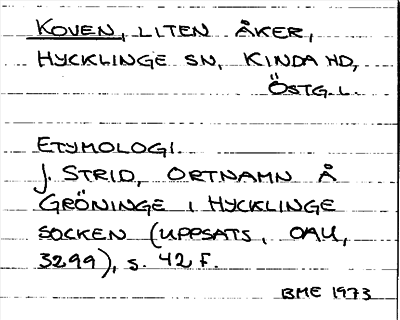 KOVEN, LITEN ÅKER,
HYCKLINGE SN, KINDA HD,
ÖSTG. L.
ETYMOLOGI.
J. STRID, ORTNAMN Å
GRÖNINGE I HYCKLINGE
SOCKEN (UPPSATS, OAU,
3299), s. 42 F.
BME 1973